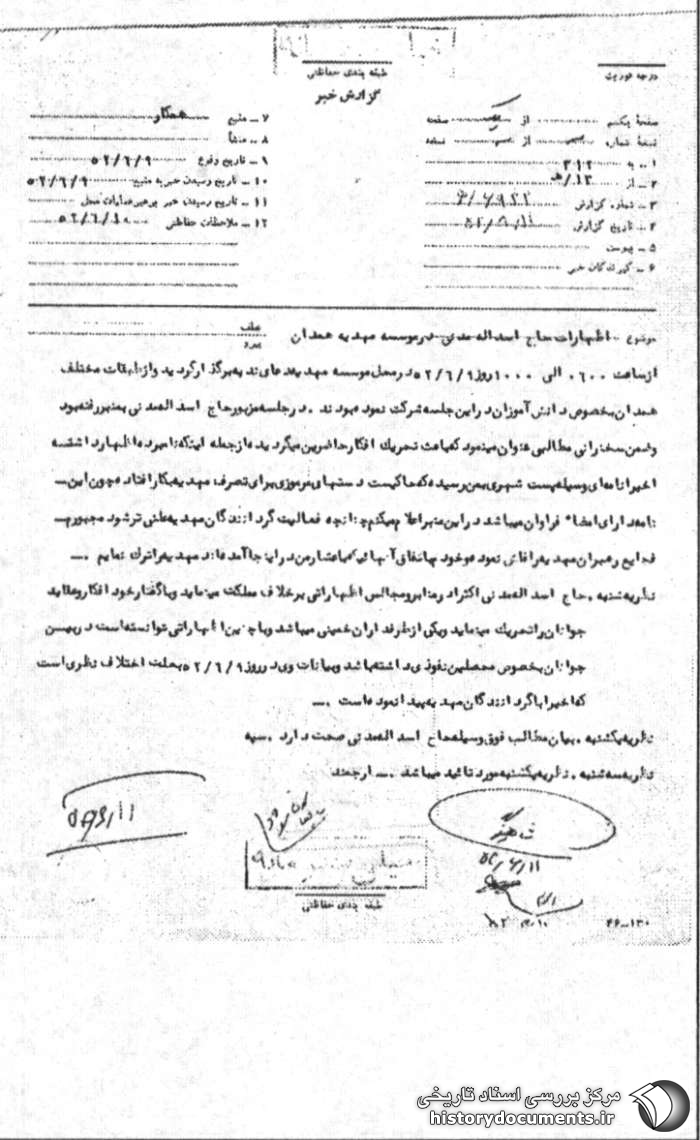 طبقه بندی حفاظتی
درجه فوریت
گزارش خبر
صفحهٔ یکم از یک صفحه
نسخهٔ شماره از نسخه
۱ - به ۳۱۲
۲ - از ۱۳/ه
۳ - شماره گزارش
۴ - تاریخ گزارش
۵ - پیوست
۶ - گیرندگان خبر
۷ - منبع همکار
۸ - منشأ
۹ - تاریخ وقوع ۵۲/۶/۹
۱۰ - تاریخ رسیدن خبر به منبع ۵۲/۶/۹
۱۱ - تاریخ رسیدن خبر به رهبر عملیات محل
۱۲ - ملاحظات حفاظتی ۵۲/۶/۱۰
موضوع - اظهارات حاج اسداله مدنی در موسسه مهدیه همدان
عطف
پیرو
از ساعت ۰۶۰۰ الی ۱۰۰۰ روز ۵۲/۶/۹ در محل موسسه مهدیه دعای ندبه برگزار گردید و از طبقات مختلف
همدان بخصوص دانش آموزان در این جلسه شرکت نموده بودند . در جلسه مزبور حاج اسداله مدنی به منبر رفته بود
و ضمن سخنرانی مطالبی عنوان مینمود که باعث تحریک افکار حاضرین میگردید از جمله اینکه نامبرده اظهار داشته
اخیرا نامه ای وسیله پست شهری بمن رسیده که حاکیست دستهای مرموزی برای تصرف مهدیه بکار افتاده چون این -
نامه دارای امضاء فراوان میباشد در این منبر اعلام میکنم چنانچه فعالیت گردانندگان مهدیه علنی تر شود مجبورم -
فجایع رهبران مهدیه را فاش نموده و خود باتفاق آنهائیکه باعتبار من در اینجا آمده اند مهدیه را ترک نمایم .-
نظریه شنبه . حاج اسداله مدنی اکثرا در منابر و مجالس اظهاراتی برخلاف مملکت مینماید و با گفتار خود افکار و عقاید
جوانان را تحریک مینماید و یکی از طرفداران خمینی میباشد و با چنین اظهاراتی توانسته است در بین
جوانان بخصوص محصلین نفوذی داشته باشد و بیانات وی در روز ۵۲/۶/۹ بعلت اختلاف نظری است
که اخیرا با گردانندگان مهدیه پیدا نموده است .-
نظریه یکشنبه . بیان مطالب فوق وسیله حاج اسداله مدنی صحت دارد . سپه
نظریه سه شنبه . نظریه یکشنبه مورد تائید میباشد . - ارجمند
طبقه بندی حفاظتی
۴۶-۱۳۰
مرکز بررسی اسناد تاریخی
historydocuments.ir